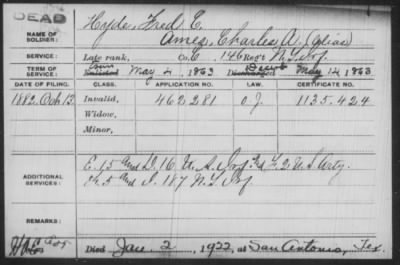 DEAD
NAME OF SOLDIER: Hyde, Fred E.
Ames, Charles A. (Alias)
SERVICE: Late rank, Co. 146 Reg't N.Y. Inf.
TERM OF SERVICE: Enlisted May 4, 1863 Discharged May 14, 1863
DATE OF FILING. CLASS. APPLICATION NO. LAW. CERTIFICATE NO.
1882, Oct 13 Invalid, 462281 1135.424
Widow,
Minor,
ADDITIONAL SERVICES: E. 15 and D. 16 U.S. Inf. F. 2 U.S. Arty.
and I. 187 N.Y. Inf
REMARKS:
Died Jan. 2, 1922, at San Antonio, Tex.